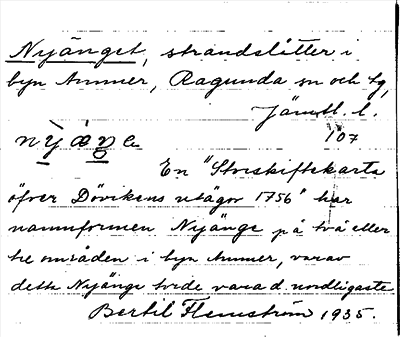 Nyänget, strandslåtter i
byn Ammer, Ragunda sn och tg,
Jämtl. l.
107
En "Storskifteskarta
öfver Dövikens utägor 1756" har
namnformen Nyänge på två eller
tre områden i byn Ammer, varav
detta Nyänge torde vara d. nordligaste
Bertil Flemström 1935.